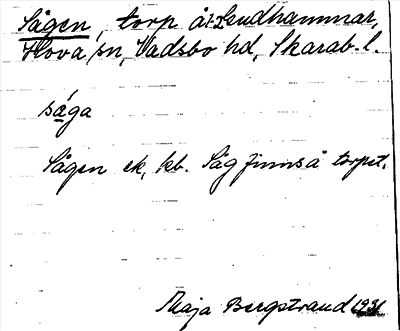 Sågen, torp å Lendhammar,
Hova sn, Vadsbo hd, Skarab. l.
såga
Sågen ek, kb. Såg finns å torpet.
Maja Bergstrand 1931